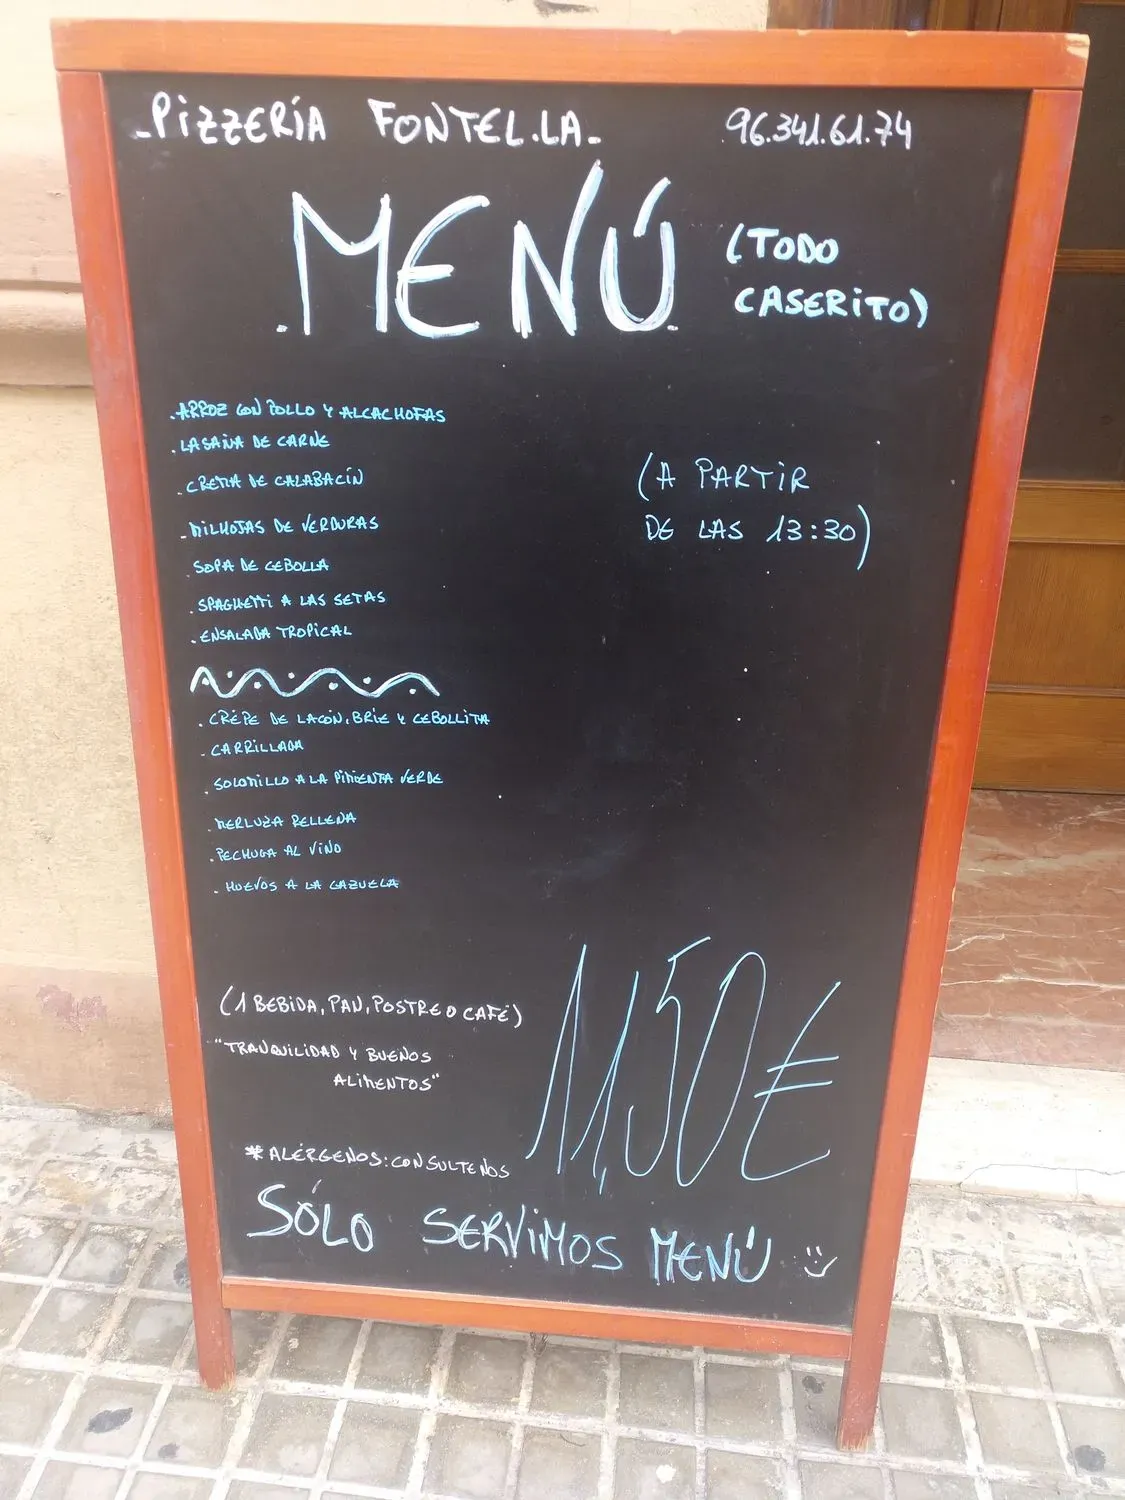 -PIZZERÍA FONTEL.LA- 96.341.61.74
.MENÚ. (TODO
CASERITO)
.ARROZ CON POLLO Y ALCACHOFAS
.LASAÑA DE CARNE
.CREMA DE CALABACÍN
.MILHOJAS DE VERDURAS
.SOPA DE CEBOLLA
.SPAGHETTI A LAS SETAS
.ENSALADA TROPICAL
(A PARTIR
DE LAS 13:30)
.CRÊPE DE LACÓN, BRIE Y CEBOLLITA
.CARRILLADA
.SOLOMILLO A LA PIMIENTA VERDE
.MERLUZA RELLENA
.PECHUGA AL VINO
.HUEVOS A LA CAZUELA
(1 BEBIDA, PAN, POSTRE O CAFÉ)
"TRANQUILIDAD Y BUENOS
ALIMENTOS"
11,50€
*ALÉRGENOS: CONSULTENOS
SÓLO SERVIMOS MENÚ